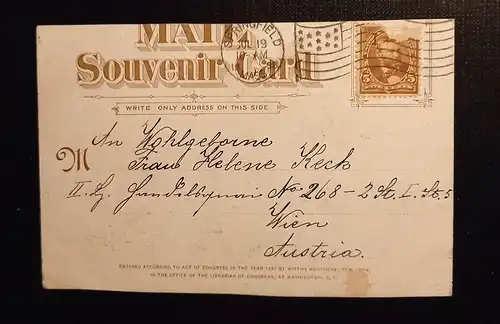 MAIL
Souvenir Card
SPRINGFIELD
JUL 19
MASS
5 5
WRITE ONLY ADDRESS ON THIS SIDE
M An Wohlgeborne
Frau Helene Keck
II. No 268 - 2 St. I. St. 5
Wien
Austria.
ENTERED ACCORDING TO ACT OF CONGRESS IN THE YEAR 1897 BY WIRTHS BROTHERS, NEW YORK,
IN THE OFFICE OF THE LIBRARIAN OF CONGRESS, AT WASHINGTON, D. C.